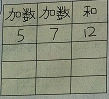 加数 加数 和
5 7 12